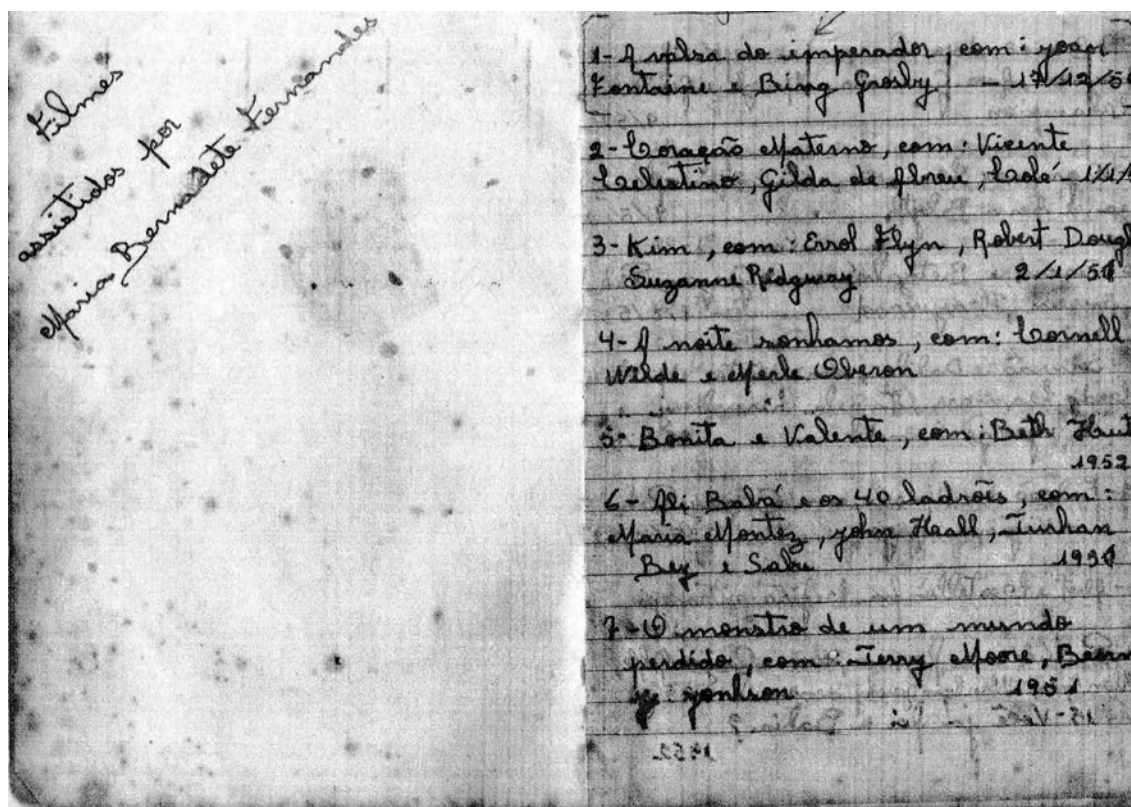 Filmes
assistidos por
Maria Bernadete Fernandes
1- A valsa do imperador, com: Joan
Fontaine e Bing Grosby — 17/12/50
2- Coração Materno, com: Vicente
Celestino, Gilda de Abreu, Colé 1/1/
3- Kim, com: Errol Flyn, Robert Dougl
Suzanne Ridgway 2/1/51
4- A noite sonhamos, com: Cornell
Wilde e Merle Oberon
5- Bonita e Valente, com: Beth Hut
1952
6- Ali Babá e os 40 ladrões, com:
Maria Montez, John Heall, Turhan
Bey e Sabu
7- O monstro de um mundo
perdido, com: Terry Moore, Bearn
Jonhson 1951